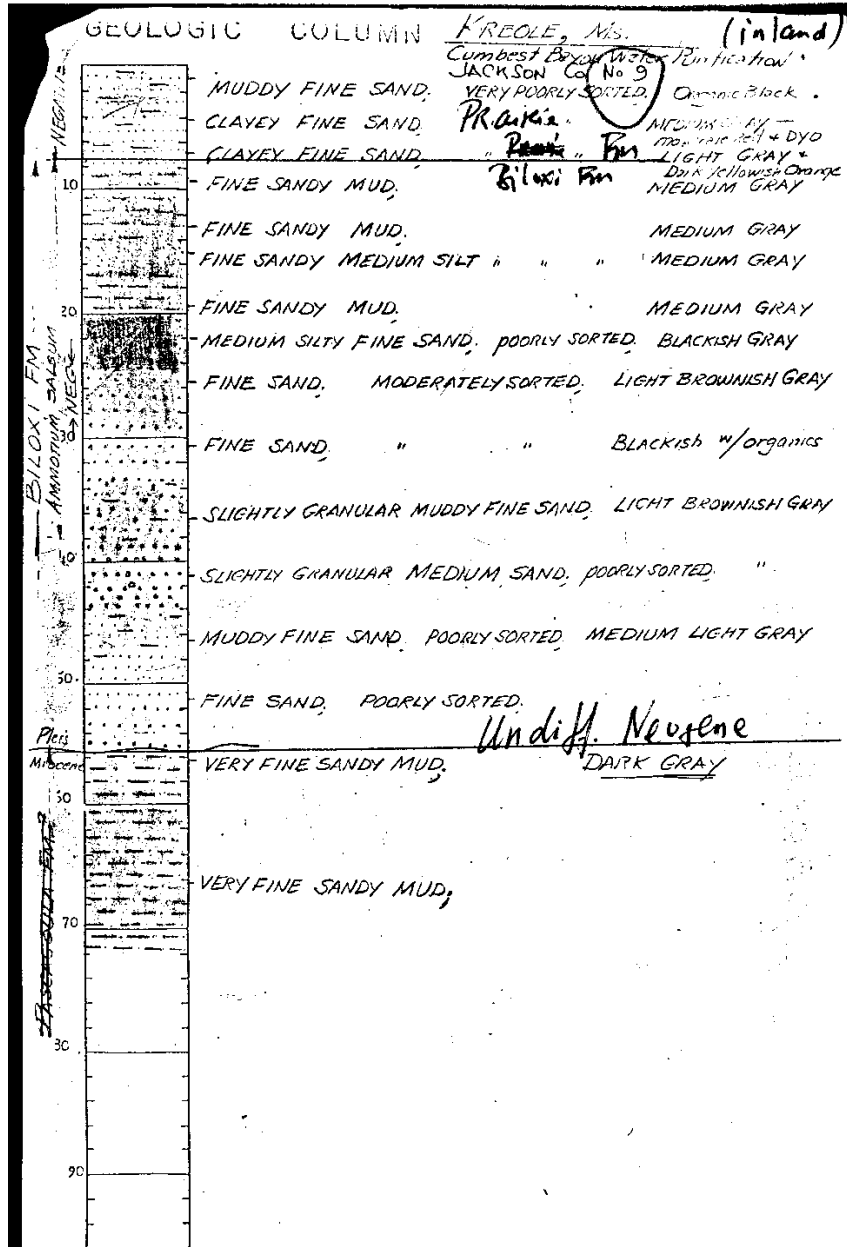 GEOLOGIC COLUMN KREOLE, Ms. (inland)
Cumbest Bayou Water Purification
JACKSON Co No 9
MUDDY FINE SAND. VERY POORLY SORTED. Organic Black.
NEGATIVE
CLAYEY FINE SAND. PRairie MEDIUM GRAY —
moderate red + DYO
CLAYEY FINE SAND. " Fm LIGHT GRAY +
Dark Yellowish Orange
10 FINE SANDY MUD. Biloxi Fm MEDIUM GRAY
FINE SANDY MUD. MEDIUM GRAY
FINE SANDY MEDIUM SILT " " " MEDIUM GRAY
20 FINE SANDY MUD. MEDIUM GRAY
MEDIUM SILTY FINE SAND. POORLY SORTED. BLACKISH GRAY
FINE SAND. MODERATELY SORTED. LIGHT BROWNISH GRAY
BILOXI FM
AMMOTIUM SALSUM
NEG
30 FINE SAND. " " BLACKISH w/organics
SLIGHTLY GRANULAR MUDDY FINE SAND. LIGHT BROWNISH GRAY
40
SLIGHTLY GRANULAR MEDIUM SAND. POORLY SORTED. "
MUDDY FINE SAND. POORLY SORTED. MEDIUM LIGHT GRAY
50.
FINE SAND. POORLY SORTED.
Pleis Undiff. Neogene
Miocene VERY FINE SANDY MUD; DARK GRAY
60
PASCAGOULA FM?
VERY FINE SANDY MUD;
70
80
90